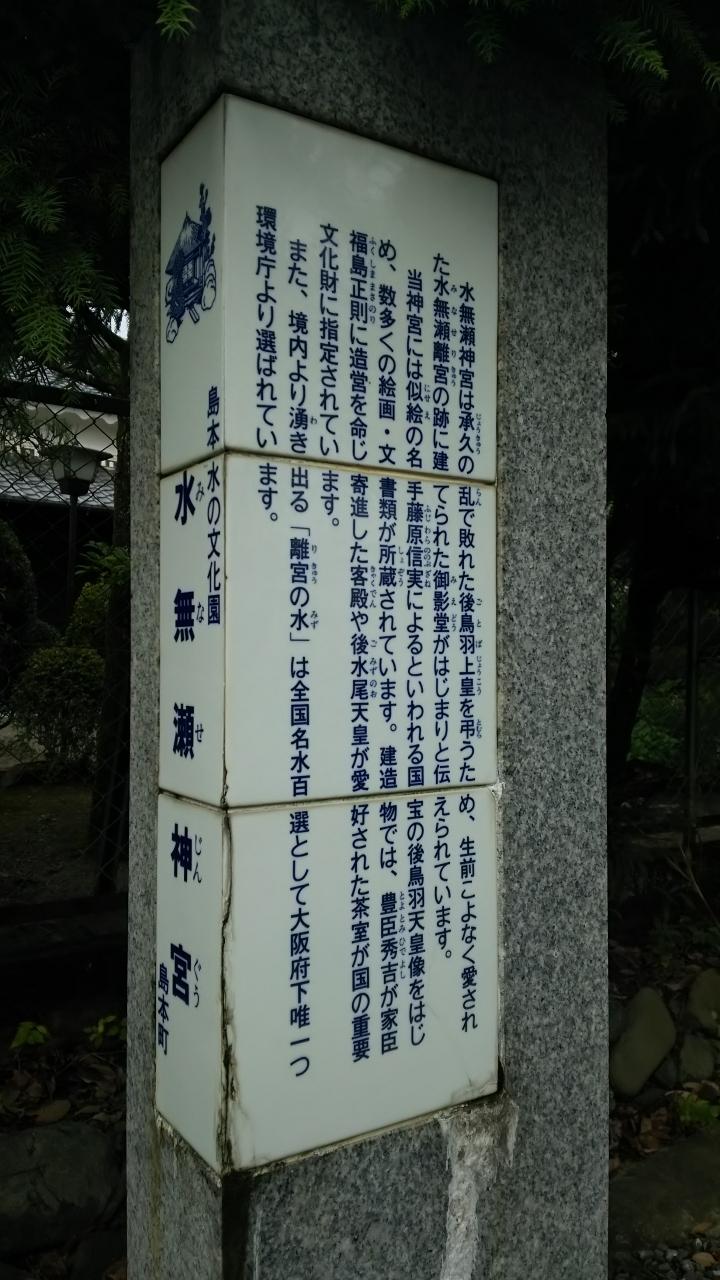 島本 水の文化園
水無瀬神宮
みなせじんぐう
島本町
水無瀬神宮は承久の乱で敗れた後鳥羽上皇を弔うため、生前こよなく愛され
た水無瀬離宮の跡に建てられた御影堂がはじまりと伝えられています。
当神宮には似絵の名手藤原信実によるといわれる国宝の後鳥羽天皇像をはじ
め、数多くの絵画・文書類が所蔵されています。建造物では、豊臣秀吉が家臣
福島正則に造営を命じ寄進した客殿や後水尾天皇が愛好された茶室が国の重要
文化財に指定されています。
また、境内より湧き出る「離宮の水」は全国名水百選として大阪府下唯一つ
環境庁より選ばれています。